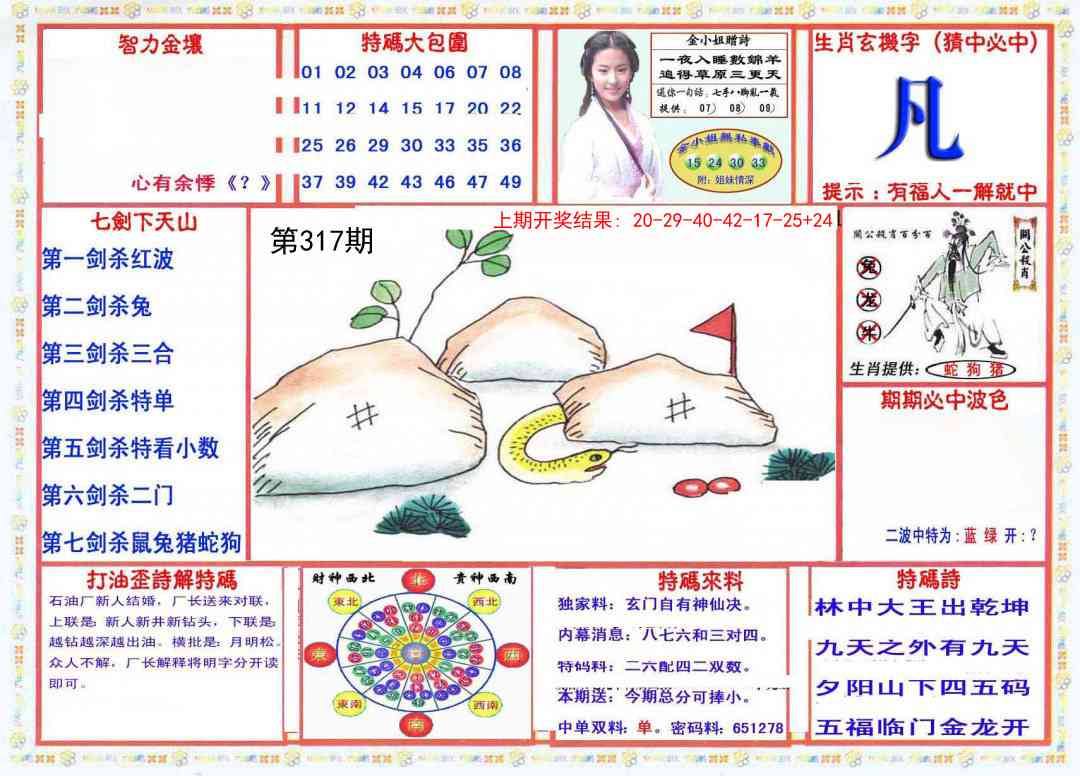 智力金壤
心有余悸《?》
特碼大包圍
01 02 03 04 06 07 08
11 12 14 15 17 20 22
25 26 29 30 33 35 36
37 39 42 43 46 47 49
金小姐贈詩
一夜入睡數錦羊
追得草原三更天
送你一句话:七手八脚亂一氣
提供: 07) 08) 09)
金小姐無私奉獻
15 24 30 33
附:姐妹情深
生肖玄機字(猜中必中)
凡
提示:有福人一解就中
七劍下天山
第一剑杀红波
第二剑杀兔
第三剑杀三合
第四剑杀特单
第五剑杀特看小数
第六剑杀二门
第七剑杀鼠兔猪蛇狗
上期开奖结果: 20-29-40-42-17-25+24
第317期
關公殺肖百分百
關公殺肖
兔
龙
牛
生肖提供: 蛇 狗 猪
期期必中波色
二波中特为:蓝 绿 开:?
打油歪詩解特碼
石油厂新人结婚,厂长送来对联,
上联是:新人新井新钻头,下联是:
越钻越深越出油。横批是:月明松。
众人不解,厂长解释将明字分开读
即可。
財神西北
貴神西南
北
東北
西北
東
西
東南
西南
南
特碼來料
独家料:玄门自有神仙决。
内幕消息:八七六和三对四。
特码料:二六配四二双数。
本期送:今期总分可捧小。
中单双料:单。密码料:651278
特碼詩
林中大王出乾坤
九天之外有九天
夕阳山下四五码
五福临门金龙开